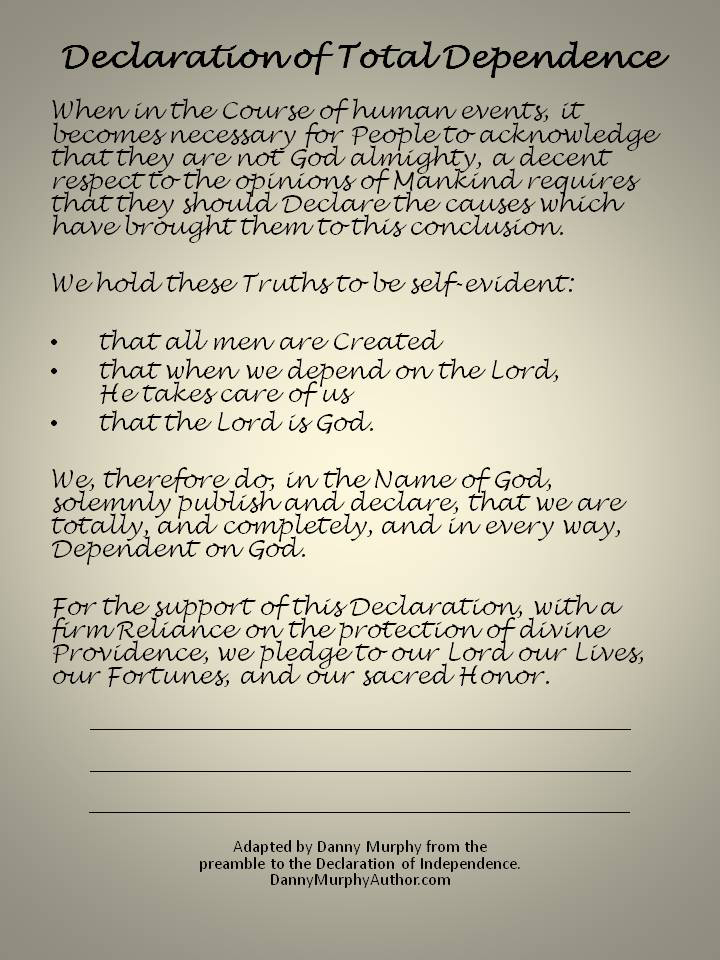 Declaration of Total Dependence
When in the Course of human events, it
becomes necessary for People to acknowledge
that they are not God almighty, a decent
respect to the opinions of Mankind requires
that they should Declare the causes which
have brought them to this conclusion.
We hold these Truths to be self-evident:
• that all men are Created
• that when we depend on the Lord,
He takes care of us
• that the Lord is God.
We, therefore do, in the Name of God,
solemnly publish and declare, that we are
totally, and completely, and in every way,
Dependent on God.
For the support of this Declaration, with a
firm Reliance on the protection of divine
Providence, we pledge to our Lord our Lives,
our Fortunes, and our sacred Honor.
Adapted by Danny Murphy from the
preamble to the Declaration of Independence.
DannyMurphyAuthor.com